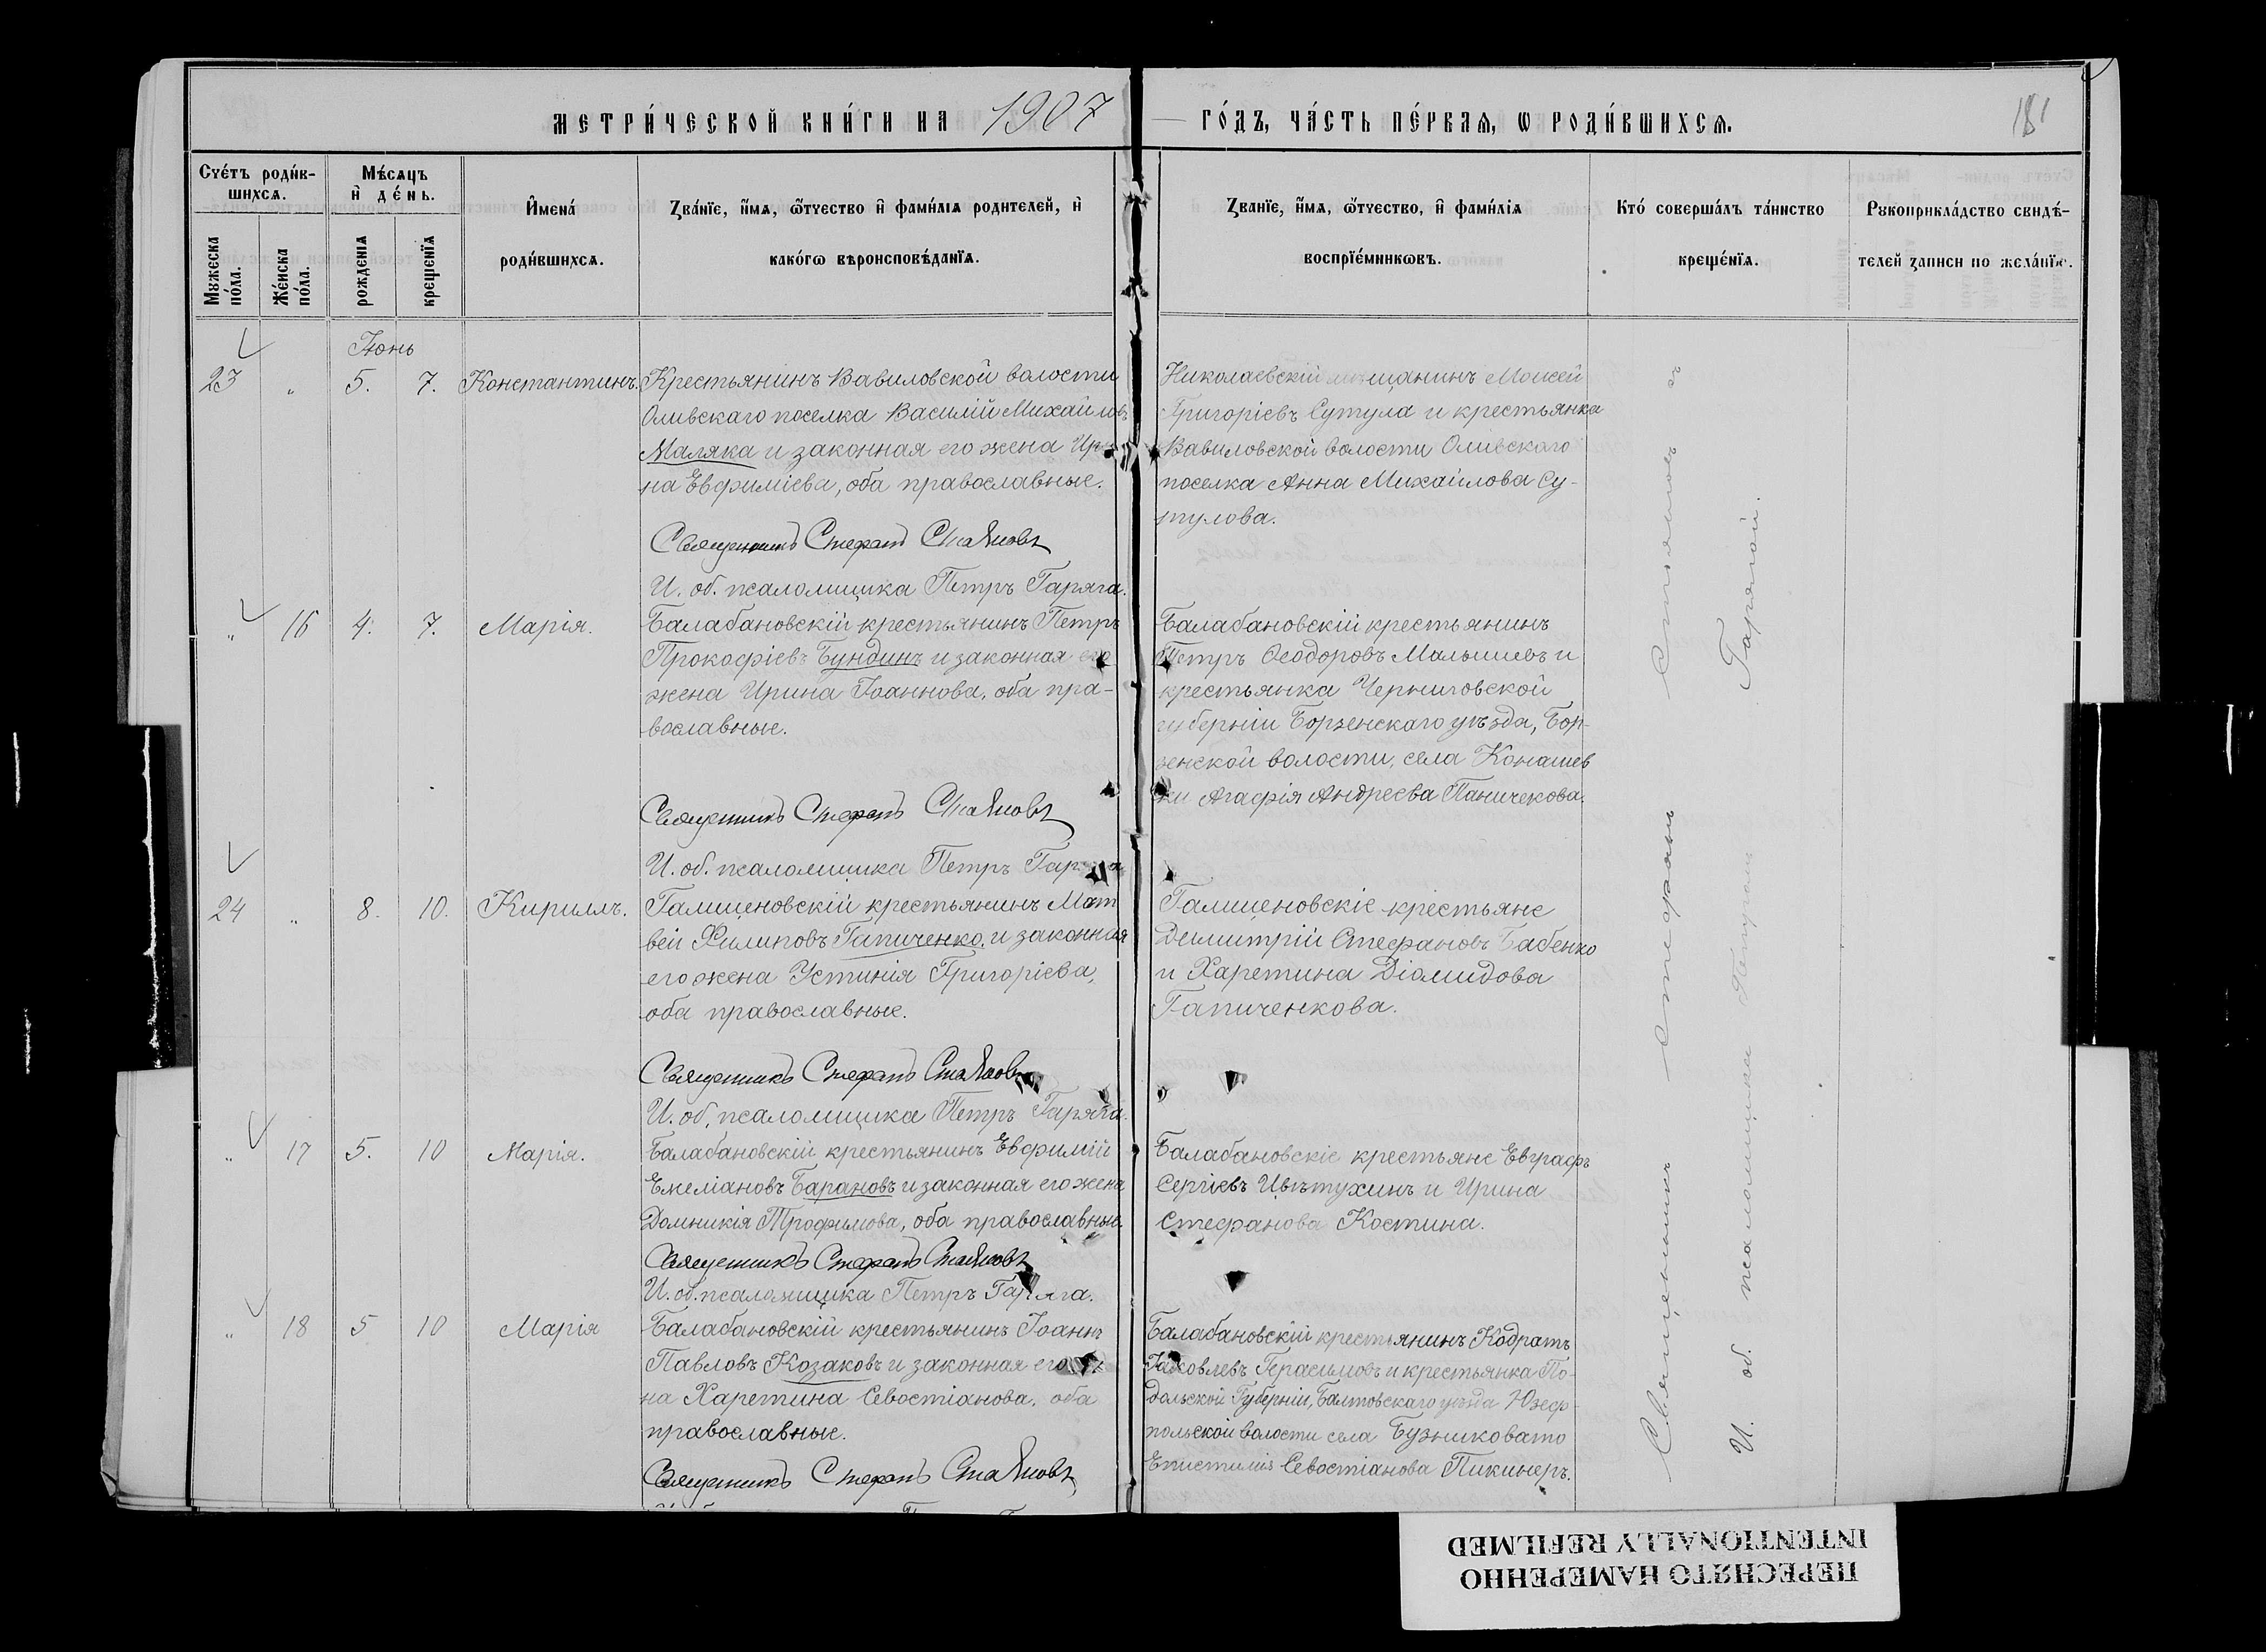 МЕТРИ́ЧЕСКОЙ КНИ́ГИ НА 1907 ГО́ДЪ, ЧА́СТЬ ПЕ́РВАѦ, Ѡ РОДИ́ВШИХСѦ.
181
Сче́тъ роди́в-
шихсѧ.
Мужеска
по́ла.
Же́нска
по́ла.
Мѣ́сѧцъ
и҆ де́нь.
рожденїѧ
крещенїѧ
И҆мена́
роди́вшихсѧ.
Зва́нїе, и҆́мѧ, ѻ҆́тчество и҆ фами́лїѧ родителей, и҆
како́гѡ вѣроисповѣ́данїѧ.
Званїе, и҆́мѧ, ѻ҆́тчество, и҆ фами́лїѧ
воспрїе́мникѡвъ.
Кто́ соверша́лъ та́инство
креще́нїѧ.
Рукоприкла́дство свидѣ́-
телей записи по жела́нїю.
Іюнь
23 " 5. 7. Константинъ.
Крестьянинъ Вавиловской волости
Оливскаго поселка Василій Михайловъ
Маляка и законная его жена Ири-
на Евфиміева, оба православные.
Священникъ Стефанъ Стояновъ
И. об. псаломщика Петръ Гаряга.
Николаевскій мѣщанинъ Моисей
Григоріевъ Сутула и крестьянка
Вавиловской волости Оливскаго
поселка Анна Михайлова Су-
тулова.
" 16 4. 7. Марія.
Балабановскій крестьянинъ Петръ
Прокофіевъ Бундинъ и законная его
жена Ирина Іоаннова, оба пра-
вославные.
Священникъ Стефанъ Стояновъ
И. об. псаломщика Петръ Гаряга
Балабановскій крестьянинъ
Петръ Ѳеодоровъ Малышевъ и
крестьянка Черниговской
губерніи Борзенскаго уѣзда, Бор-
зенской волости, села Конашев
ки Агафія Андреева Паничекова.
24 " 8. 10. Кириллъ.
Галициновскій крестьянинъ Мат
вей Филиповъ Гапиченко, и законная
его жена Устинія Григоріева,
оба православные.
Священникъ Стефанъ Стояновъ
И. об. псаломщика Петръ Гаряга.
Галициновскіе крестьяне
Димитрій Стефановъ Бабенко
и Харетина Діомидова
Гапиченкова.
" 17 5. 10 Марія.
Балабановскій крестьянинъ Евфимій
Емеліановъ Барановъ и законная его жена
Домникія Трофимова, оба православные.
Священникъ Стефанъ Стояновъ
И. об. псаломщика Петръ Гаряга.
Балабановскіе крестьяне Евграфъ
Сергіевъ Цвѣтухинъ и Ирина
Стефанова Костина.
" 18 5 10 Марія
Балабановскій крестьянинъ Іоаннъ
Павловъ Козаковъ и законная его
на Харетина Севостіанова, оба
православные.
Священникъ Стефанъ Стояновъ
Балабановскій крестьянинъ Кодратъ
Іаковлевъ Герасимовъ и крестьянка По-
дольской Губерніи, Балтовскаго уѣзда Юзеф-
польской волости села Бузниковато
Епистимія Севостіанова Пикинеръ.
Священникъ Стефанъ Стояновъ съ
И. об. псаломщика Петромъ Гарягой.
ПЕРЕСНЯТО НАМЕРЕННО
INTENTIONALLY REFILMED